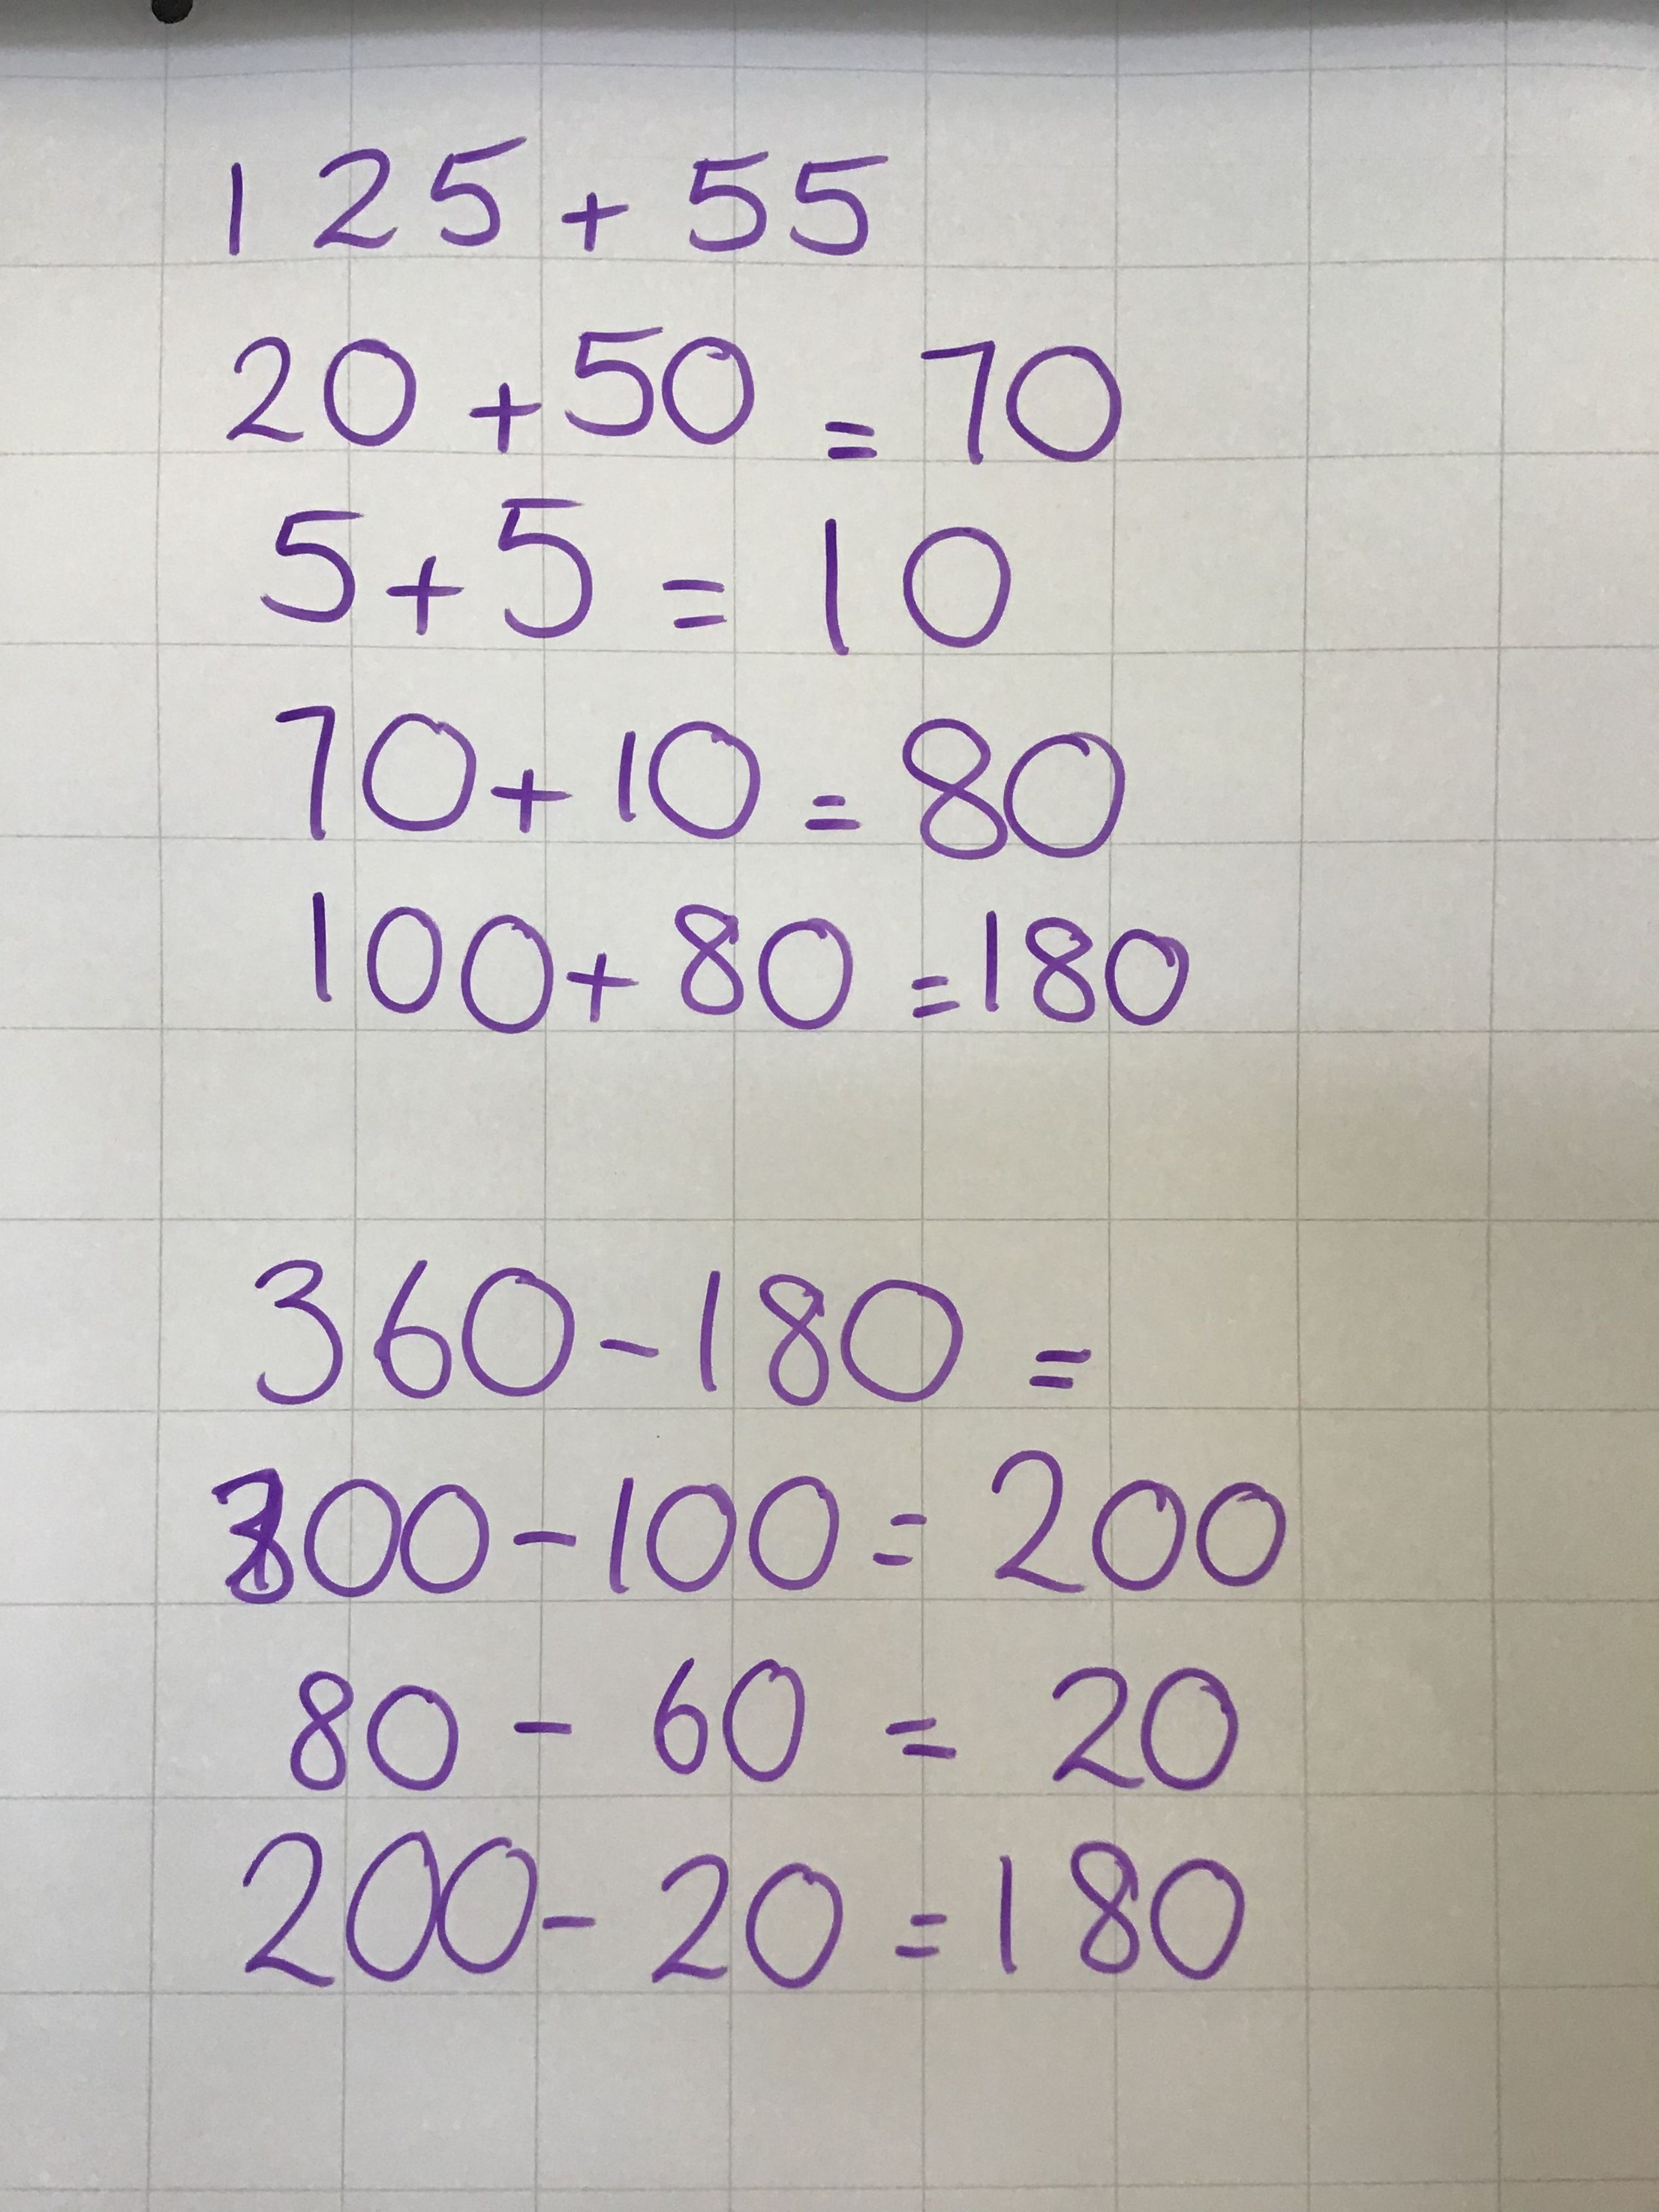 125 + 55
20 + 50 = 70
5 + 5 = 10
70 + 10 = 80
100 + 80 = 180
360 - 180 =
300 - 100 = 200
80 - 60 = 20
200 - 20 = 180